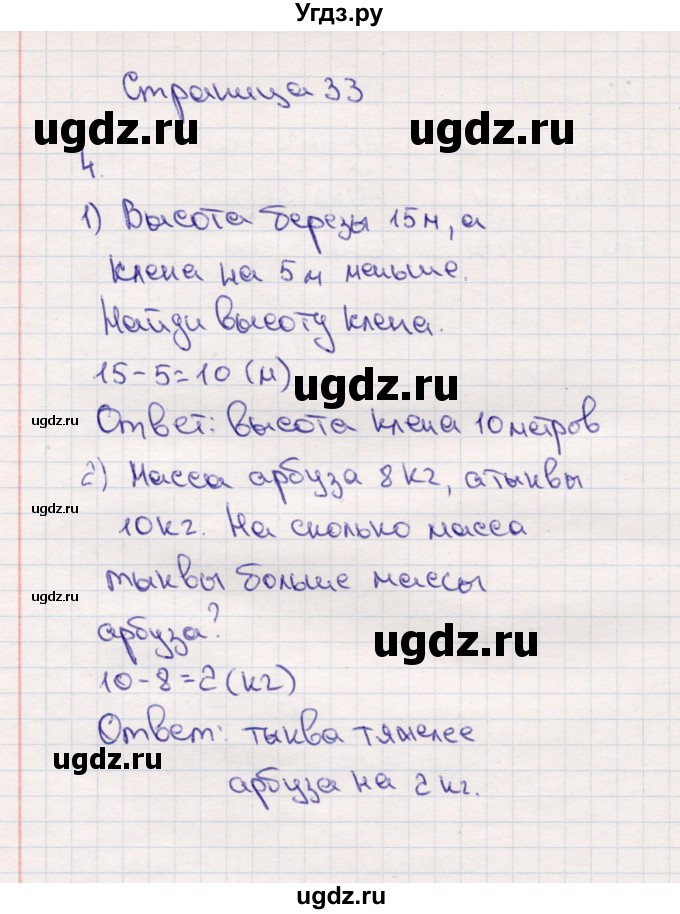 Угдз.ру
Страница 33
ugdz.ru ugdz.ru
4.
1) Высота березы 15 м, а
клена на 5 м меньше.
Найди высоту клена.
15-5=10 (м)
ugdz.ru
ugdz.ru
Ответ: высота клена 10 метров
2) Масса арбуза 8 кг, а тыквы
ugdz.ru
10 кг. На сколько масса
тыквы больше массы
ugdz.ru
арбуза?
ugdz.ru
10-8=2 (кг)
Ответ: тыква тяжелее
ugdz.ru
арбуза на 2 кг.
ugdz.ru